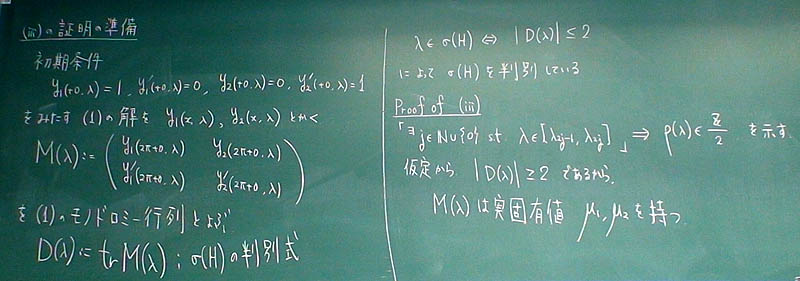 (iii)の証明の準備
初期条件
y₁(+0,λ)=1, y₁'(+0,λ)=0, y₂(+0,λ)=0, y₂'(+0,λ)=1
をみたす (1)の解を y₁(x,λ), y₂(x,λ) とかく
M(λ):= ( y₁(2π+0,λ) y₂(2π+0,λ)
y₁'(2π+0,λ) y₂'(2π+0,λ) )
を (1)のモノドロミー行列とよぶ
D(λ):= tr M(λ) ; σ(H)の判別式
λ∈σ(H) ⇔ |D(λ)| ≤ 2
によって σ(H)を判別している
Proof of (iii)
「∃j∈N∪{0} s.t. λ∈[λ₂ⱼ₋₁, λ₂ⱼ]」 ⇒ ρ(λ)∈ Z/2 を示す.
仮定から |D(λ)| ≥ 2 であるから,
M(λ)は実固有値 μ₁, μ₂ を持つ.